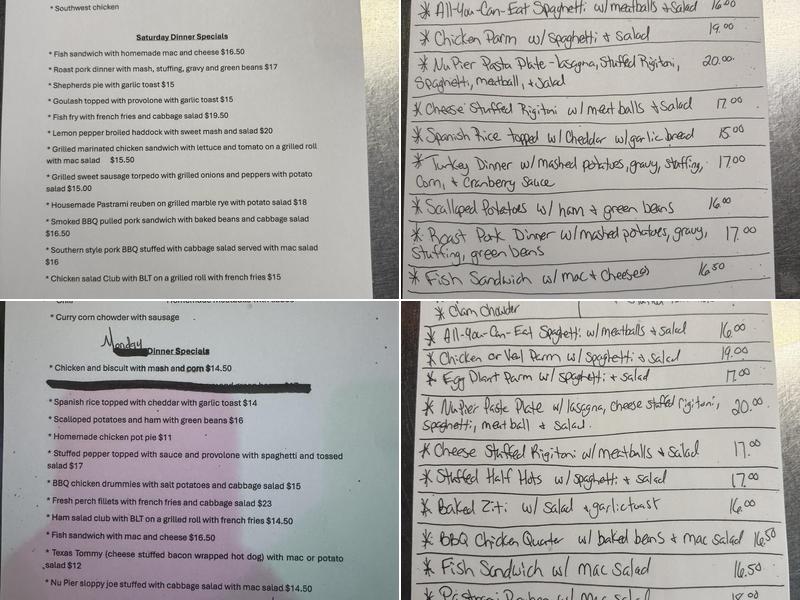 * Southwest chicken
Saturday Dinner Specials
* Fish sandwich with homemade mac and cheese $16.50
* Roast pork dinner with mash, stuffing, gravy and green beans $17
* Shepherds pie with garlic toast $15
* Goulash topped with provolone with garlic toast $15
* Fish fry with french fries and cabbage salad $19.50
* Lemon pepper broiled haddock with sweet mash and salad $20
* Grilled marinated chicken sandwich with lettuce and tomato on a grilled roll
with mac salad $15.50
* Grilled sweet sausage torpedo with grilled onions and peppers with potato
salad $15.00
* Housemade Pastrami reuben on grilled marble rye with potato salad $18
* Smoked BBQ pulled pork sandwich with baked beans and cabbage salad
$16.50
* Southern style pork BBQ stuffed with cabbage salad served with mac salad
$16
* Chicken salad Club with BLT on a grilled roll with french fries $15
* All-You-Can-Eat Spaghetti w/meatballs & Salad 16.00
* Chicken Parm w/ spaghetti & salad 19.00
* NuPier Pasta Plate - lasagna, Stuffed Rigitoni, 20.00
Spaghetti, meatball, & Salad
* Cheese Stuffed Rigitoni w/ meatballs & Salad 17.00
* Spanish Rice topped w/ Cheddar w/garlic bread 15.00
* Turkey Dinner w/mashed potatoes, gravy, stuffing, 17.00
Corn, & Cranberry Sauce
* Scalloped Potatoes w/ ham & green beans 16.00
* Roast Pork Dinner w/mashed potatoes, gravy, 17.00
Stuffing, green beans
* Fish Sandwich w/ mac & Cheese 16.50
* Curry corn chowder with sausage
Monday Dinner Specials
* Chicken and biscuit with mash and corn $14.50
* Spanish rice topped with cheddar with garlic toast $14
* Scalloped potatoes and ham with green beans $16
* Homemade chicken pot pie $11
* Stuffed pepper topped with sauce and provolone with spaghetti and tossed
salad $17
* BBQ chicken drummies with salt potatoes and cabbage salad $15
* Fresh perch fillets with french fries and cabbage salad $23
* Ham salad club with BLT on a grilled roll with french fries $14.50
* Fish sandwich with mac and cheese $16.50
* Texas Tommy (cheese stuffed bacon wrapped hot dog) with mac or potato
salad $12
* Nu Pier sloppy joe stuffed with cabbage salad with mac salad $14.50
* Clam Chowder
* All-You-Can-Eat Spaghetti w/meatballs & salad 16.00
* Chicken or Veal Parm w/ Spaghetti & Salad 19.00
* Egg Plant Parm w/ spaghetti & salad 17.00
* NuPier Paste Plate w/ lasagna, cheese stuffed rigitoni, 20.00
spaghetti, meatball & Salad.
* Cheese Stuffed Rigitoni w/meatballs & Salad 17.00
* Stuffed Half Hots w/ spaghetti & salad 17.00
* Baked Ziti w/ Salad & garlic toast 16.00
* BBQ Chicken Quarter w/ baked beans & mac salad 16.50
* Fish Sandwich w/ mac Salad 16.50